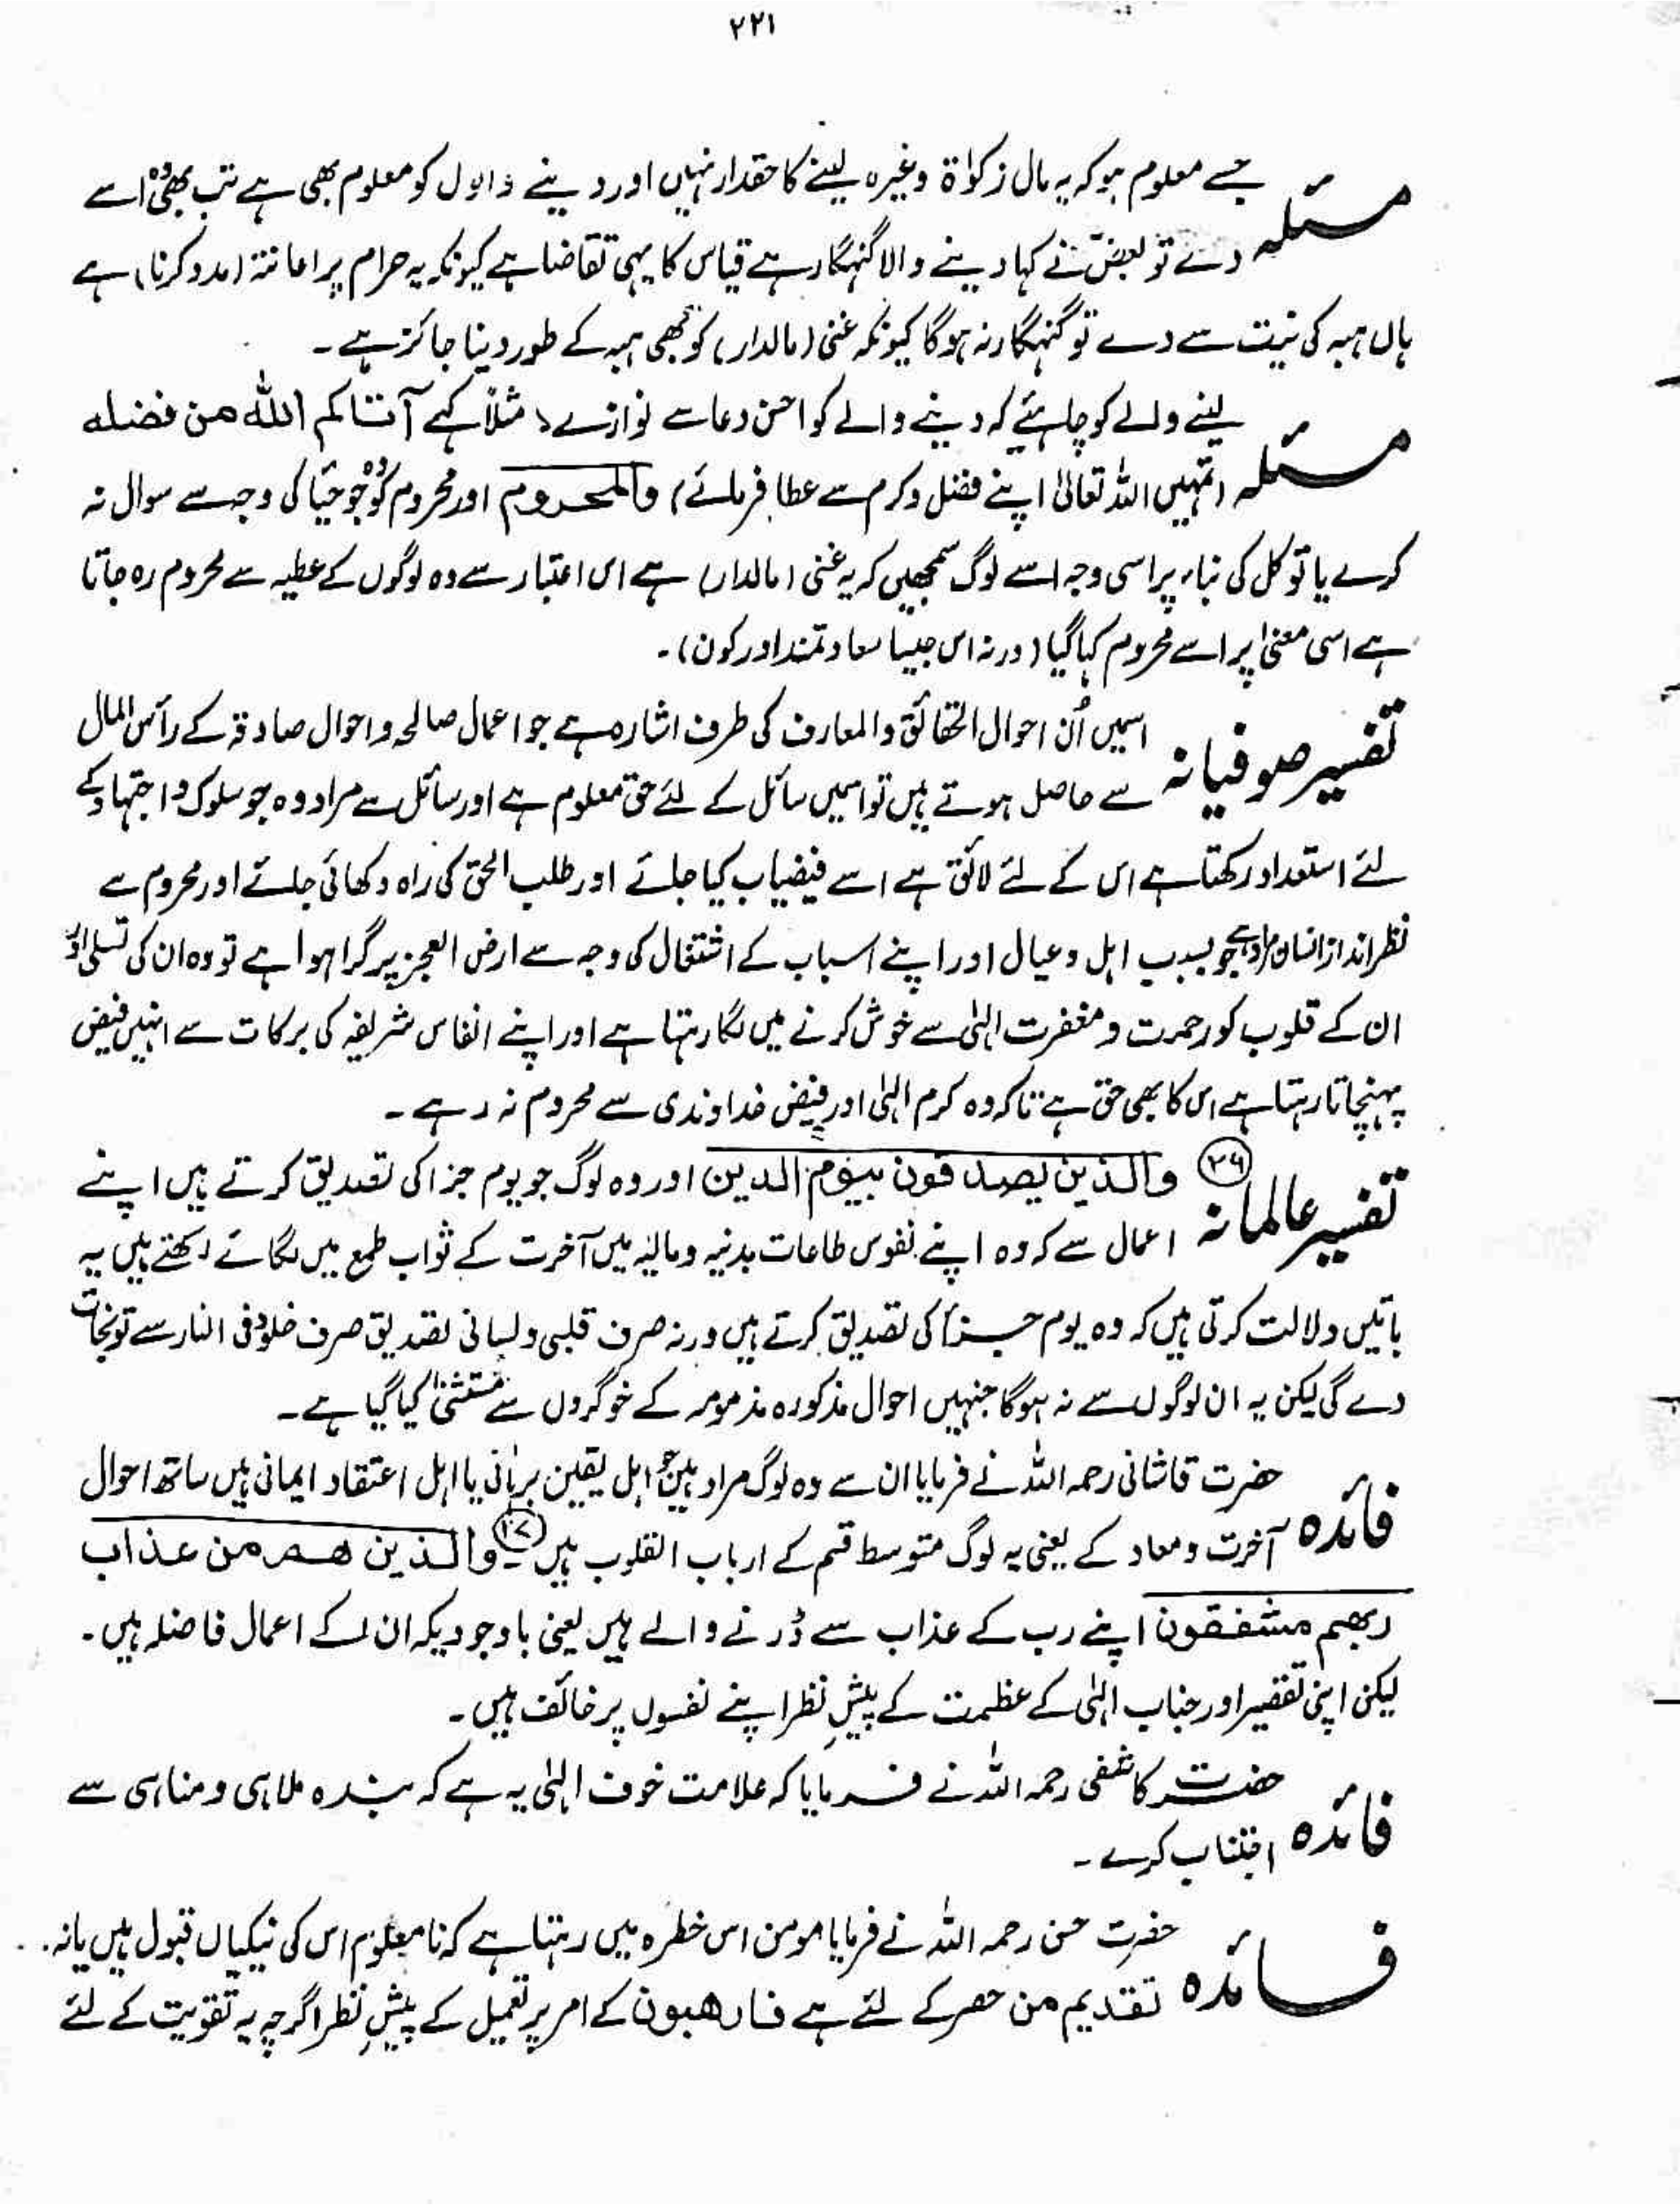 ۲۲۱
مسئلہ جسے معلوم ہو کہ یہ مال زکوٰۃ وغیرہ لینے کا حقدار نہیں اور دینے والوں کو معلوم بھی ہے تب بھی وہ اسے
دے تو بعض نے کہا دینے والا گنہگار ہے قیاس کا یہی تقاضا ہے کیونکہ یہ حرام پر اعانتہ (مدد کرنا) ہے
ہاں ہبہ کی نیت سے دے تو گنہگار نہ ہوگا کیونکہ غنی (مالدار) کو بھی ہبہ کے طور دینا جائز ہے ۔
مسئلہ لینے والے کو چاہئیے کہ دینے والے کو احسن دعا سے نوازے، مثلاً کہے آتاکم اللہ من فضلہ
(تمہیں اللہ تعالیٰ اپنے فضل و کرم سے عطا فرمائے) والمحروم اور محروم کو وہ جو حیا کی وجہ سے سوال نہ
کرے یا توکل کی بناء پر اسی وجہ اسے لوگ سمجھیں کہ یہ غنی (مالدار) ہے اس اعتبار سے وہ لوگوں کے عطیہ سے محروم رہ جاتا
ہے اسی معنیٰ پر اسے محروم کہا گیا (ورنہ اس جیسا سعادتمند اور کون) ۔
تفسیر صوفیانہ اسمیں اُن احوال الحقائق والمعارف کی طرف اشارہ ہے جو اعمال صالحہ و احوال صادقہ کے رأس المال
سے حاصل ہوتے ہیں تو اسمیں سائل کے لئے حق معلوم ہے اور سائل سے مراد وہ جو سلوک و اجتہاد کے
لئے استعداد رکھتا ہے اس کے لئے لائق ہے اسے فیضیاب کیا جائے اور طلب الحق کی راہ دکھائی جائے اور محروم سے
نظر انداز انسان مراد ہے جو بسبب اہل و عیال اور اپنے اسباب کے اشتغال کی وجہ سے ارض العجز پر گرا ہوا ہے تو وہ ان کی تسلی اور
ان کے قلوب کو رحمت و مغفرت الہٰی سے خوش کرنے میں لگا رہتا ہے اور اپنے انفاس شریفہ کی برکات سے انہیں فیض
پہنچاتا رہتا ہے اس کا بھی حق ہے تاکہ وہ کرم الہٰی اور فیض خداوندی سے محروم نہ رہے ۔
تفسیر عالمانہ ۲۶ والذین یصدقون بیوم الدین اور وہ لوگ جو یوم جزا کی تصدیق کرتے ہیں اپنے
اعمال سے کہ وہ اپنے نفوس طاعات بدنیہ و مالیہ میں آخرت کے ثواب طمع میں لگائے رکھتے ہیں یہ
باتیں دلالت کرتی ہیں کہ وہ یوم جزأ کی تصدیق کرتے ہیں ورنہ صرف قلبی و لسانی تصدیق صرف خلود فی النار سے تو نجات
دے گی لیکن یہ ان لوگوں سے نہ ہوگا جنہیں احوال مذکورہ مذمومہ کے خوگروں سے مستثنیٰ کیا گیا ہے ۔
فائدہ حضرت قاشانی رحمہ اللہ نے فرمایا ان سے وہ لوگ مراد ہیں جو اہل یقین برہانی یا اہل اعتقاد ایمانی ہیں ساتھ احوال
آخرت و معاد کے یعنی یہ لوگ متوسط قسم کے ارباب القلوب ہیں ۔ ۲۷ والذین ھم من عذاب
ربھم مشفقون اپنے رب کے عذاب سے ڈرنے والے ہیں یعنی باوجودیکہ ان کے اعمال فاضلہ ہیں ۔
لیکن اپنی تقصیر اور جناب الہٰی کے عظمت کے پیشِ نظر اپنے نفسوں پر خائف ہیں ۔
فائدہ حضرت کاشفی رحمہ اللہ نے فرمایا کہ علامت خوف الہٰی یہ ہے کہ بندہ ملاہی و مناہی سے
اجتناب کرے ۔
فائدہ حضرت حسن رحمہ اللہ نے فرمایا مومن اس خطرہ میں رہتا ہے کہ نا معلوم اس کی نیکیاں قبول ہیں یا نہ ۔
تقدیم من حصر کے لئے ہے فارھبون کے امر پر تعمیل کے پیشِ نظر اگرچہ یہ تقویت کے لئے